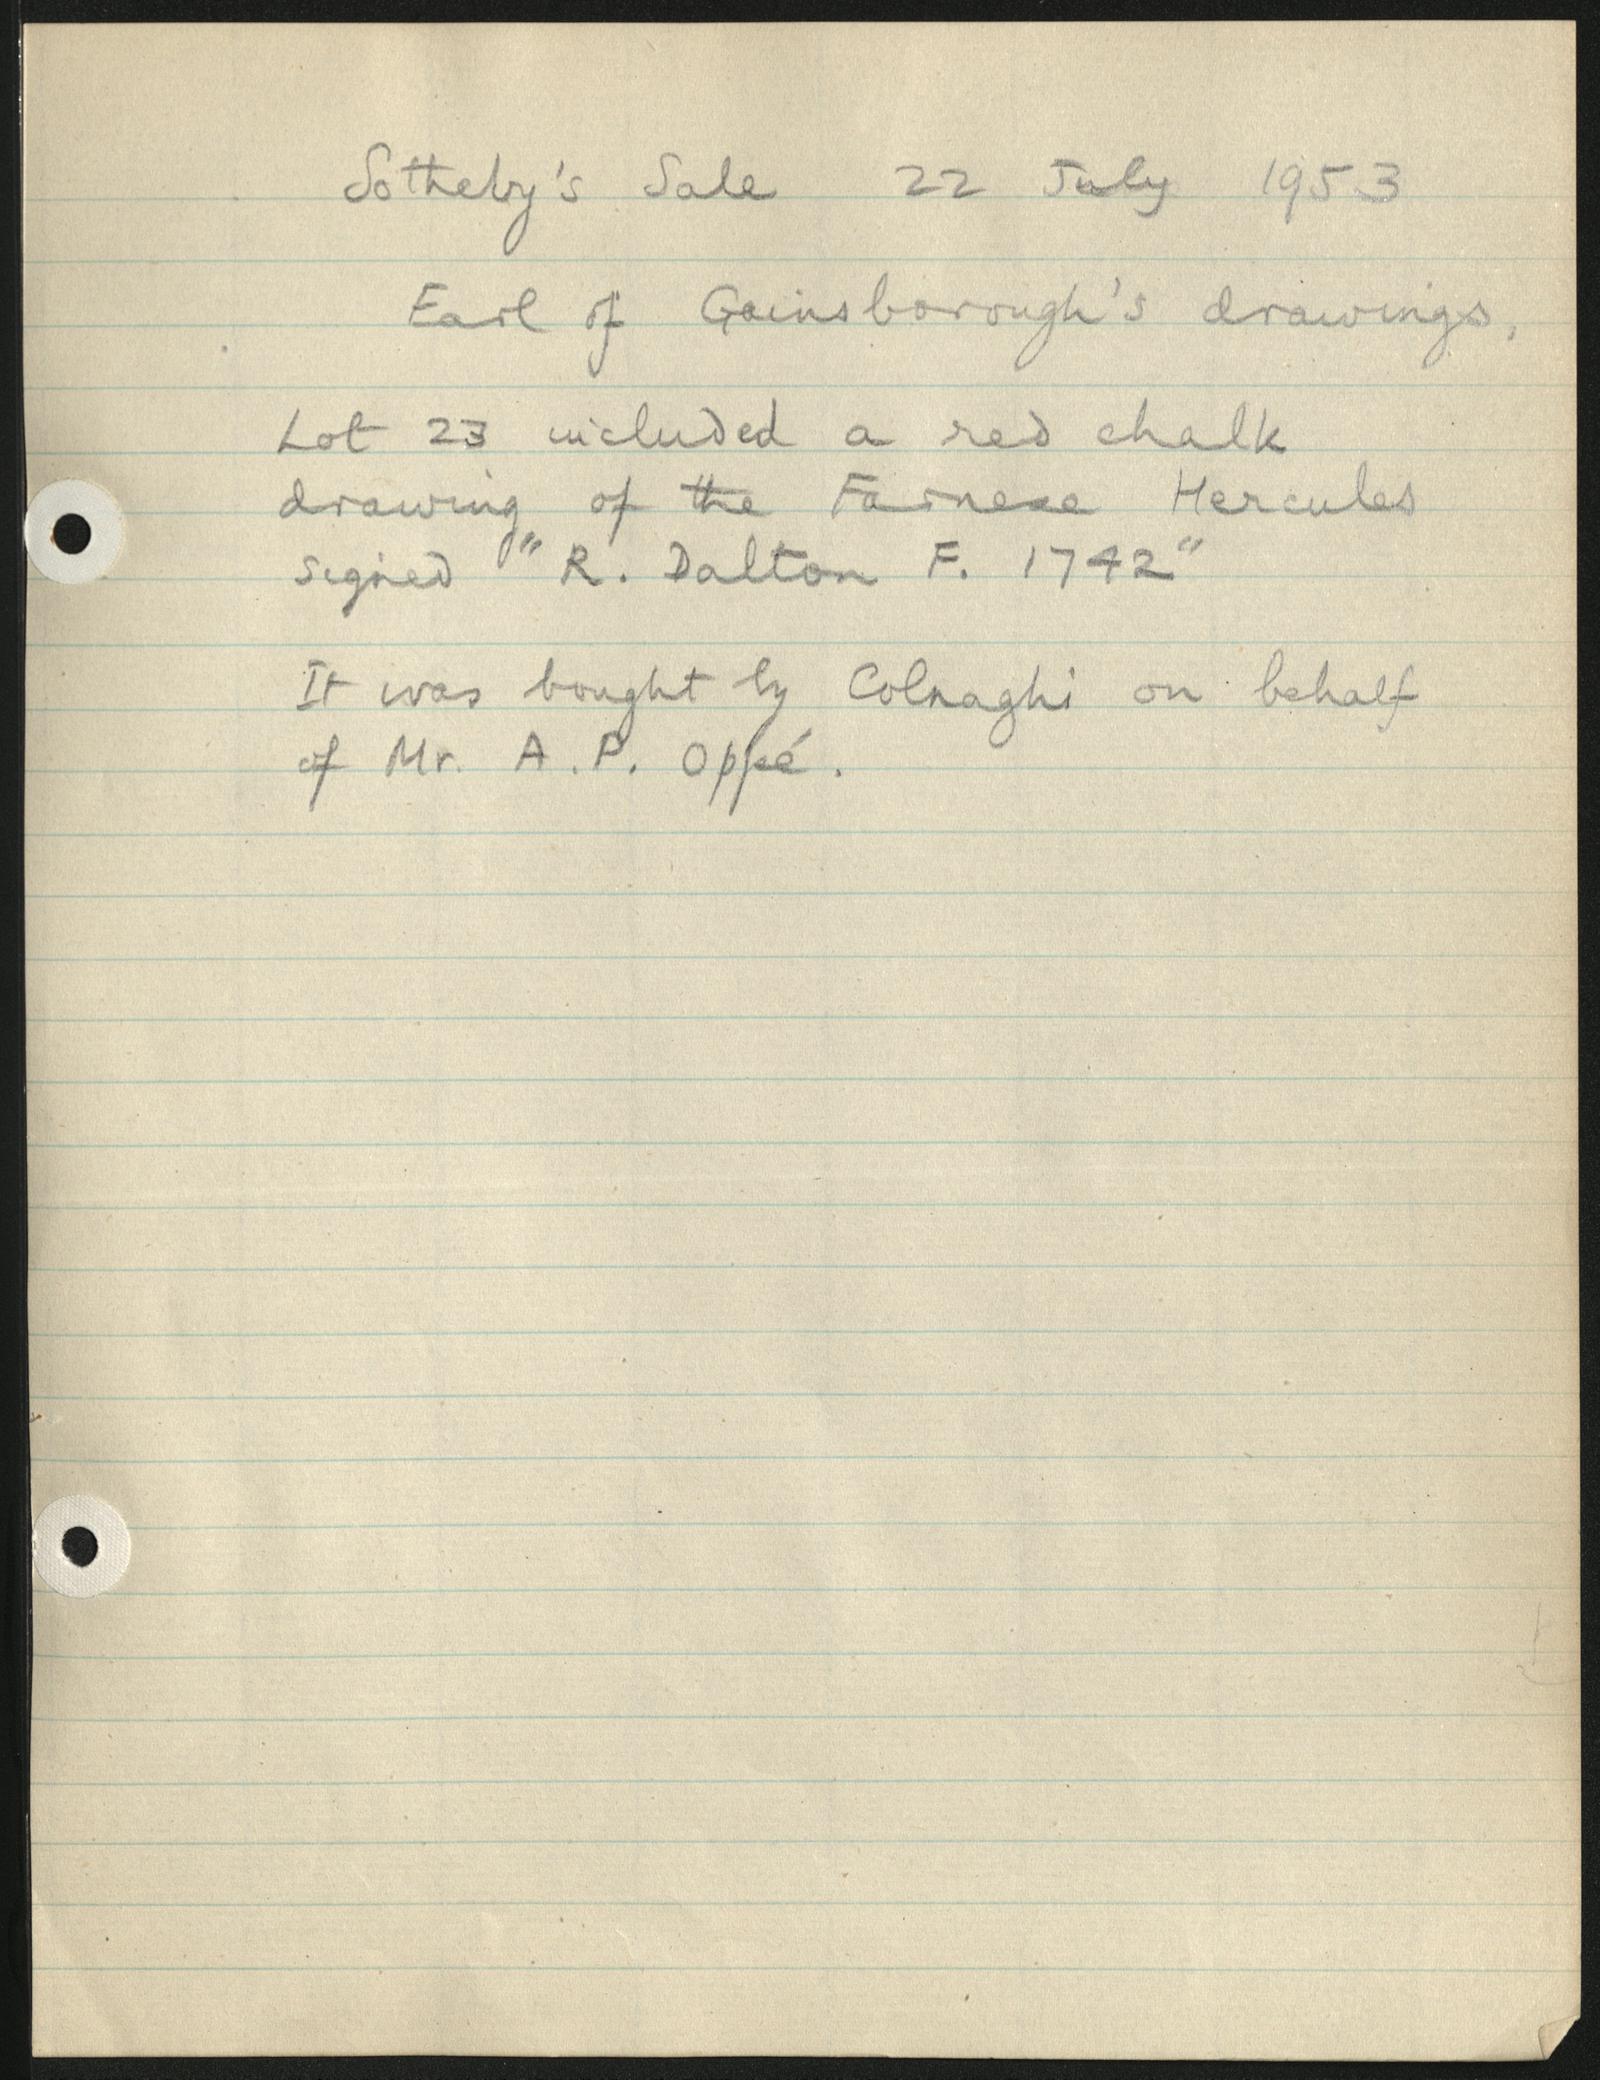 Sotheby's Sale 22 July 1953
Earl of Gainsborough's drawings,
Lot 23 included a red chalk
drawing of the Farnese Hercules
signed "R. Dalton F. 1742"
It was bought by Colnaghi on behalf
of Mr. A.P. Oppé.